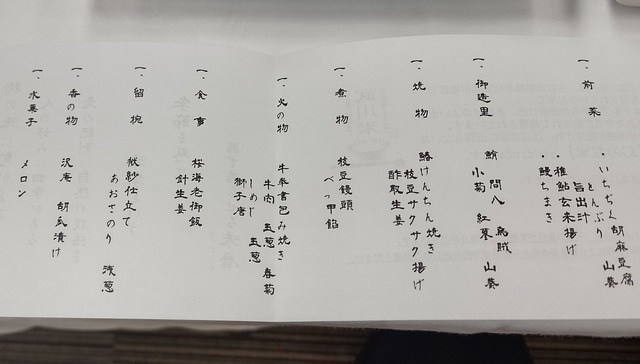 一、前菜
・いちぢく胡麻豆腐
とんぶり 山葵
旨出汁
・稚鮎玄米揚げ
・鰻ちまき
一、御造里
鮪 間八 烏賊
小菊 紅蓼 山葵
一、焼物
鱸けんちん焼き
枝豆サクサク揚げ
酢取生姜
一、煮物
枝豆饅頭
べっ甲餡
一、火の物
牛奉書包み焼き
牛肉 玉葱 春菊
しめじ 玉葱
獅子唐
一、食事
桜海老御飯
針生姜
一、留椀
袱紗仕立て
あおさのり 浅葱
一、香の物
沢庵 胡瓜漬け
一、水菓子
メロン